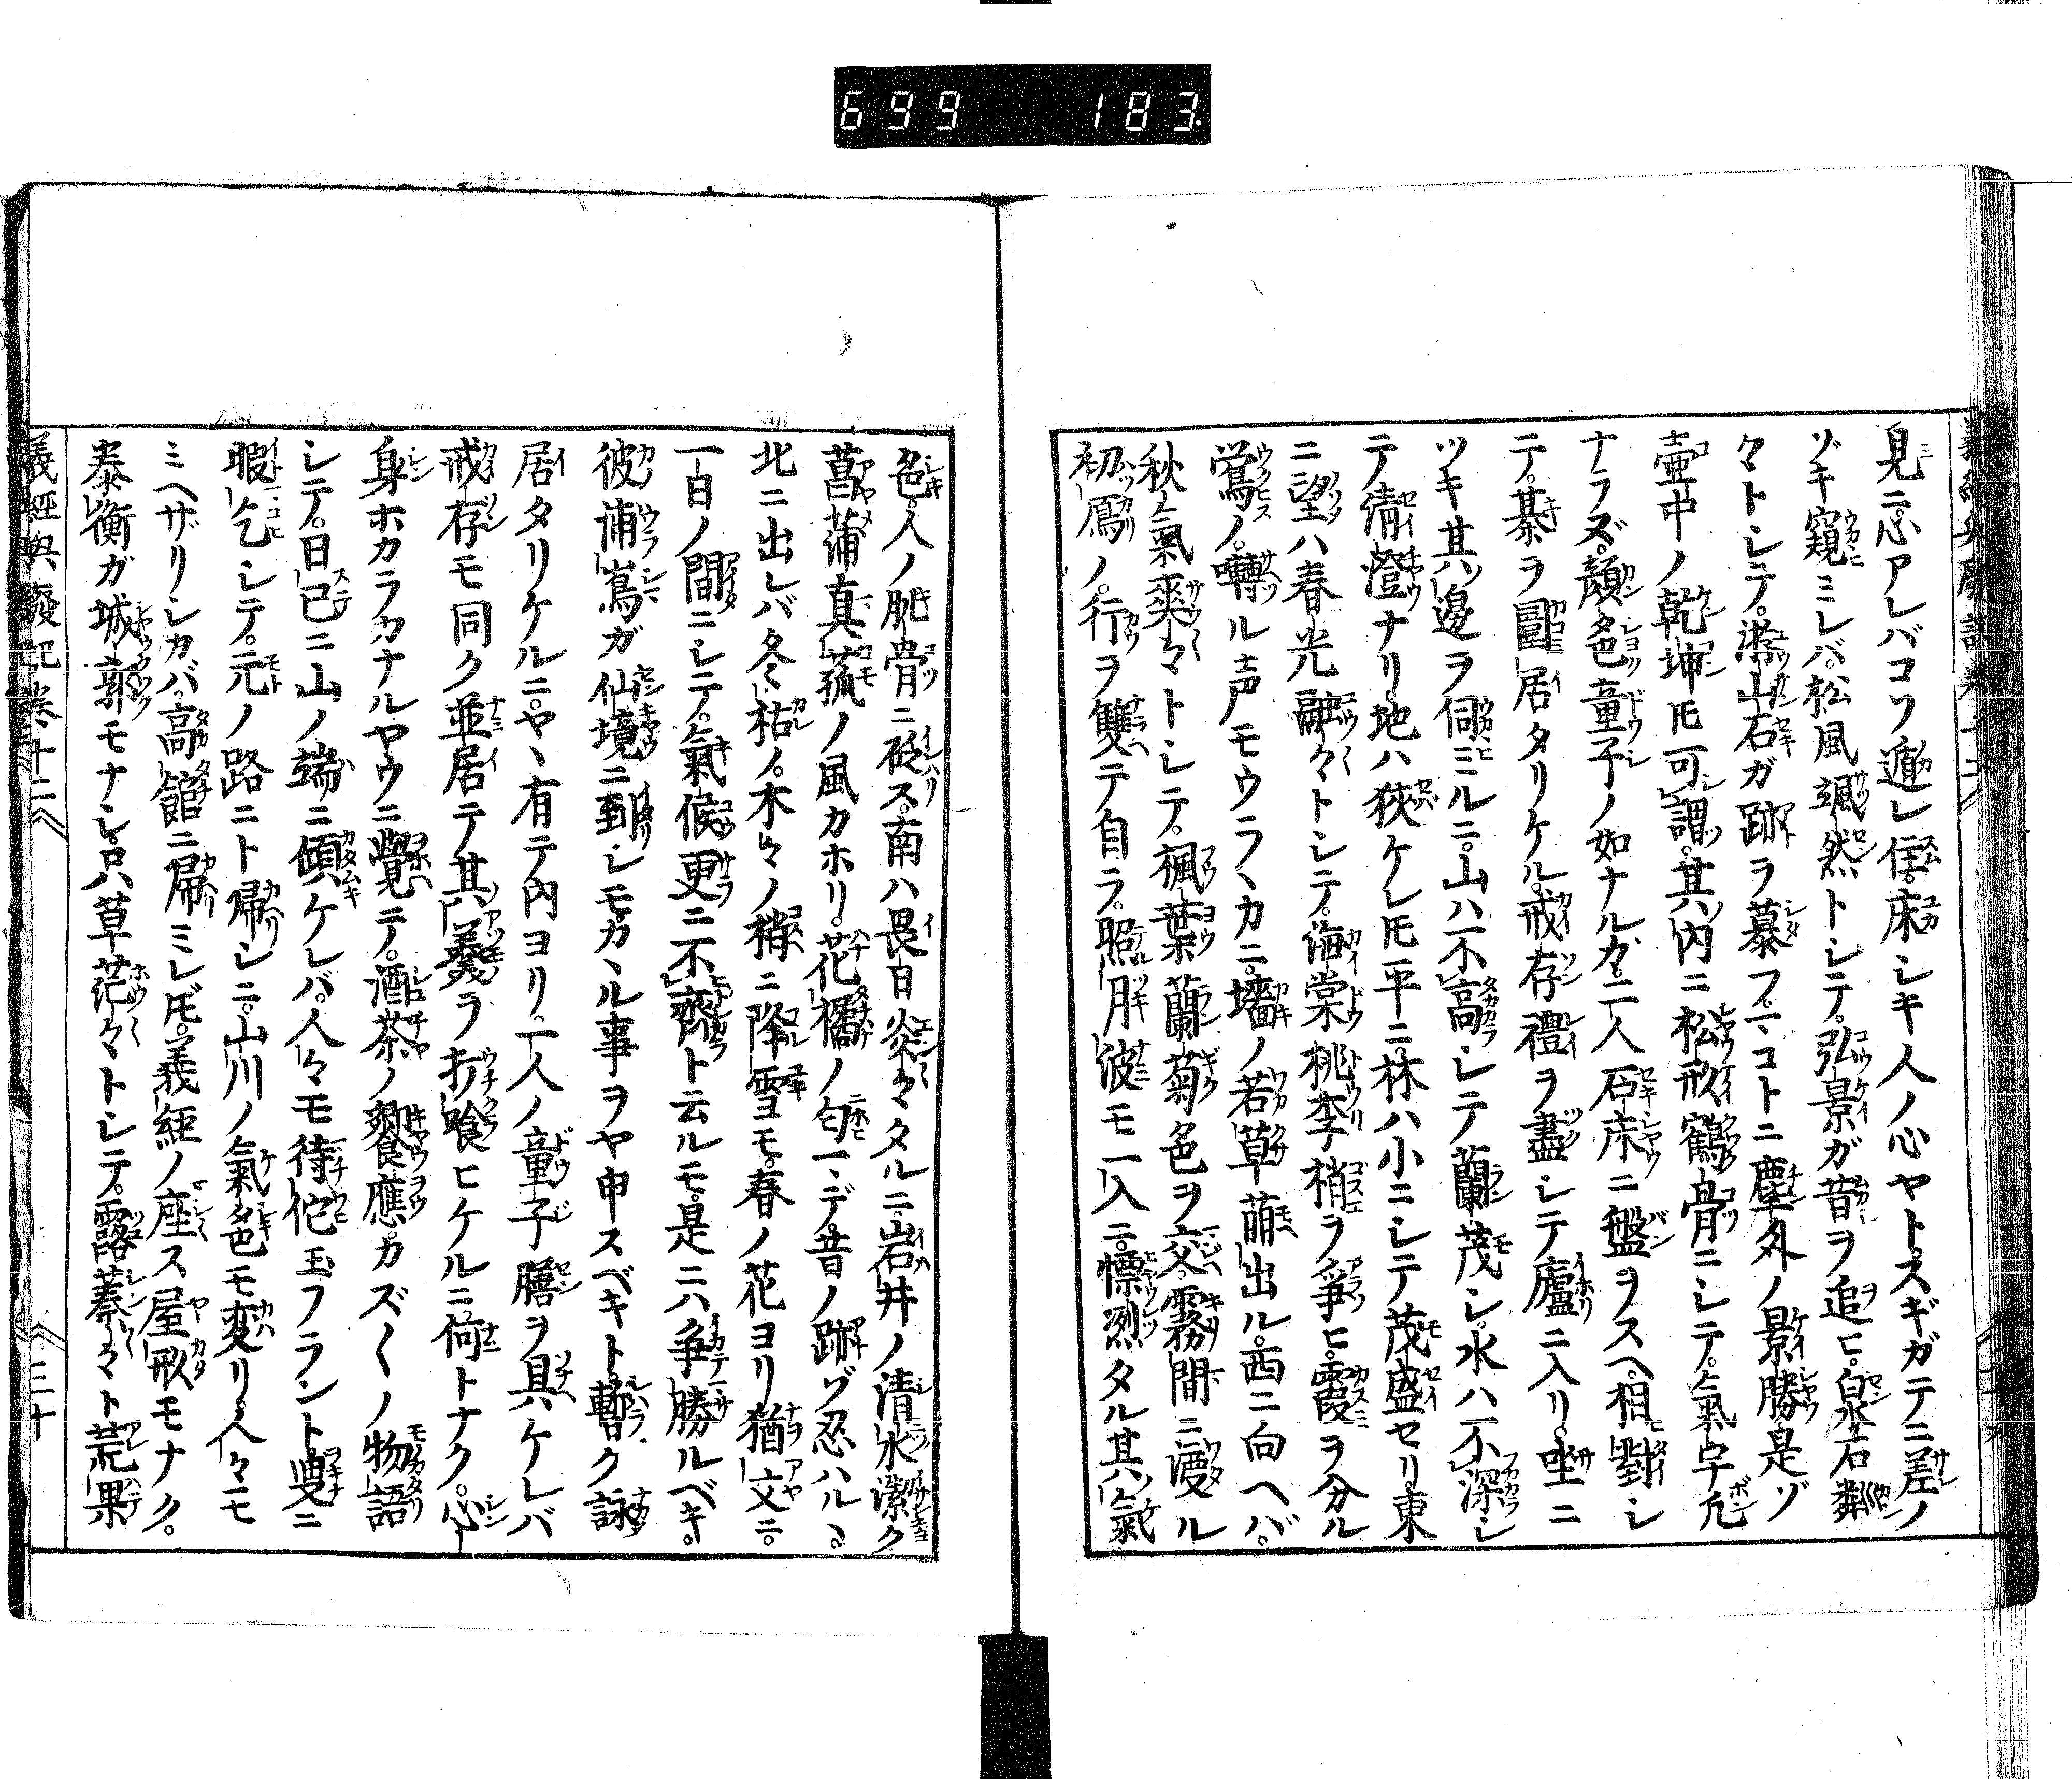 699 183
見ニ心アレバコソ遁レ住。床シキ人ノ心ヤト。スギガテニ差ノ
ゾキ窺ミレバ。松風颯然トシテ。弘景ガ昔ヲ追ヒ。泉石粼
々トシテ。潀山石ガ跡ヲ慕フ。マコトニ塵外ノ景勝是ゾ
壺中ノ乾坤トモ可謂。其内ニ松形鶴骨ニシテ。氣宇凡
ナラズ。顔色童子ノ如ナルカ。二人石床ニ盤ヲスヘ。相對シ
テ。棊ヲ圍居タリケル。戒存禮ヲ盡シテ廬ニ入リ。坐ニ
ツキ其邊ラ伺ミルニ。山ハ不高シテ蘭茂シ。水ハ不深シ
テ清澄ナリ。地ハ狹ケレトモ平ニ。林ハ小ニシテ茂盛セリ。東
ニ望ハ春光融々トシテ。海棠桃李梢ヲ爭ヒ。霞ヲ分ル
鶯ノ。囀ル声モウラヽカニ。墻ノ若草萠出ル。西ニ向ヘバ。
秋氣爽々トシテ。楓葉蘭菊色ヲ交。霧間ニ渡ル
初鳫ノ。行ヲ雙テ自ラ。照月波モ一入ニ。慓烈タル其氣
色。人ノ肌骨ニ砭ス。南ハ畏日炎々タルニ。岩井ノ清水潔ク
菖蒲真菰ノ風カホリ。花橘ノ匂マデ。昔ノ跡ゾ忍ハルヽ。
北ニ出レバ冬枯ノ。木々ノ梢ニ降雪モ。春ノ花ヨリ猶文ニ。
一日ノ間ニシテ。氣候更ニ不齊ト云ルモ。是ニハ爭勝ルベキ。
彼浦嶌ガ仙境ニ到シモカヽル事ヲヤ申スベキト。暫ク詠
居タリケルニ。ヤヽ有テ内ヨリ。一人ノ童子膳ヲ具ケレバ
戒存モ同ク並居テ其羹ヲ打喰ヒケルニ。何トナク。心
身ホカラカナルヤウニ覺ニテ。酒茶ノ饗應。カズ〱ノ物語
シテ。日已ニ山ノ端ニ傾ケレバ。人々モ待佗玉フラント。叟ニ
暇乞シテ。元ノ路ニト歸シニ。山川ノ氣色モ変リ。人々モ
ミヘザリシカバ。高館ニ歸ミレドモ。義經ノ座ス屋形モナク。
泰衡ガ城郭モナシ。只草茫々トシテ。露蓁々ト荒果
義經興廢記卷十二
三十